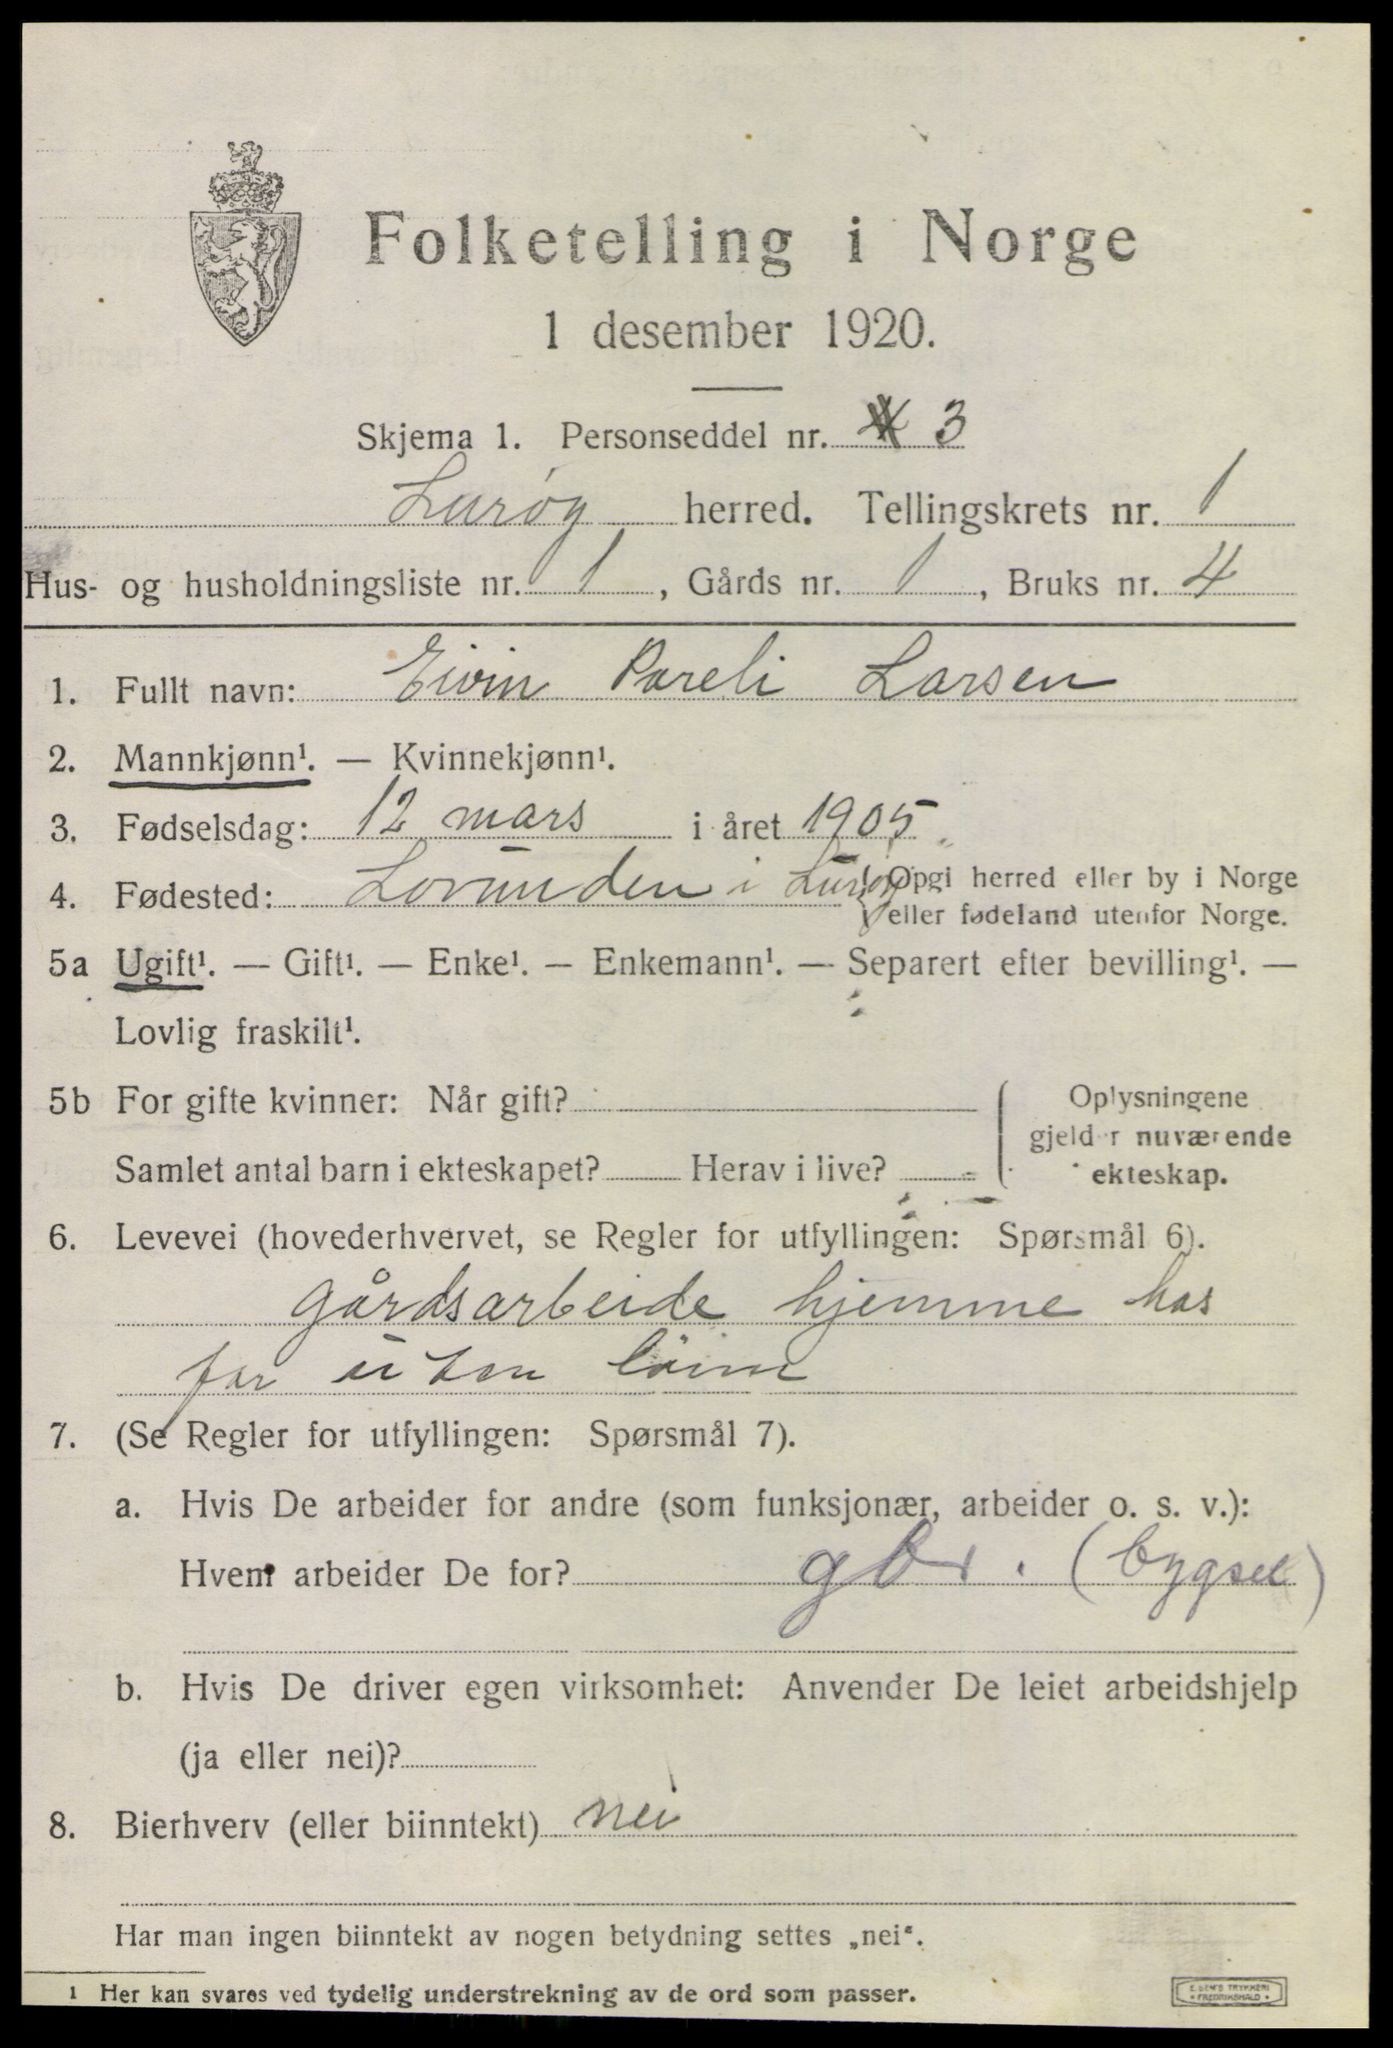 Folketelling i Norge
1 desember 1920.
Skjema 1. Personseddel nr. 3
Lurøy herred. Tellingskrets nr. 1
Hus- og husholdningsliste nr. 1, Gårds nr. 1, Bruks nr. 4
1. Fullt navn: Eivin Pareli Larsen
2. Mannkjønn¹. — Kvinnekjønn¹.
3. Fødselsdag: 12 mars i året 1905
4. Fødested: Lovunden i Lurøy { Opgi herred eller by i Norge
eller fødeland utenfor Norge.
5a Ugift¹. — Gift¹. — Enke¹. — Enkemann¹. — Separert efter bevilling¹. —
Lovlig fraskilt¹.
5b For gifte kvinner: Når gift?
Samlet antal barn i ekteskapet? Herav i live?
{ Oplysningene
gjelder nuværende
ekteskap.
6. Levevei (hovederhvervet, se Regler for utfyllingen: Spørsmål 6).
gårdsarbeide hjemme hos
far uten
7. (Se Regler for utfyllingen: Spørsmål 7).
a. Hvis De arbeider for andre (som funksjonær, arbeider o. s. v.):
Hvem arbeider De for? gbr. (bygsel)
b. Hvis De driver egen virksomhet: Anvender De leiet arbeidshjelp
(ja eller nei)?
8. Bierhverv (eller biinntekt) nei
Har man ingen biinntekt av nogen betydning settes „nei“.
1 Her kan svares ved tydelig understrekning av de ord som passer.
TRYKKERI
FREDRIKSHALD